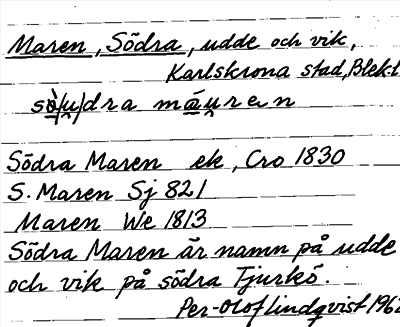 Maren, Södra, udde och vik,
Karlskrona stad, Blek-l
sò/u̯/dra máu̯ren
Södra Maren ek, Cro 1830
S. Maren Sj 821
Maren We 1813
Södra Maren är namn på udde
och vik på södra Tjurkö.
Per-Olof Lindqvist 196